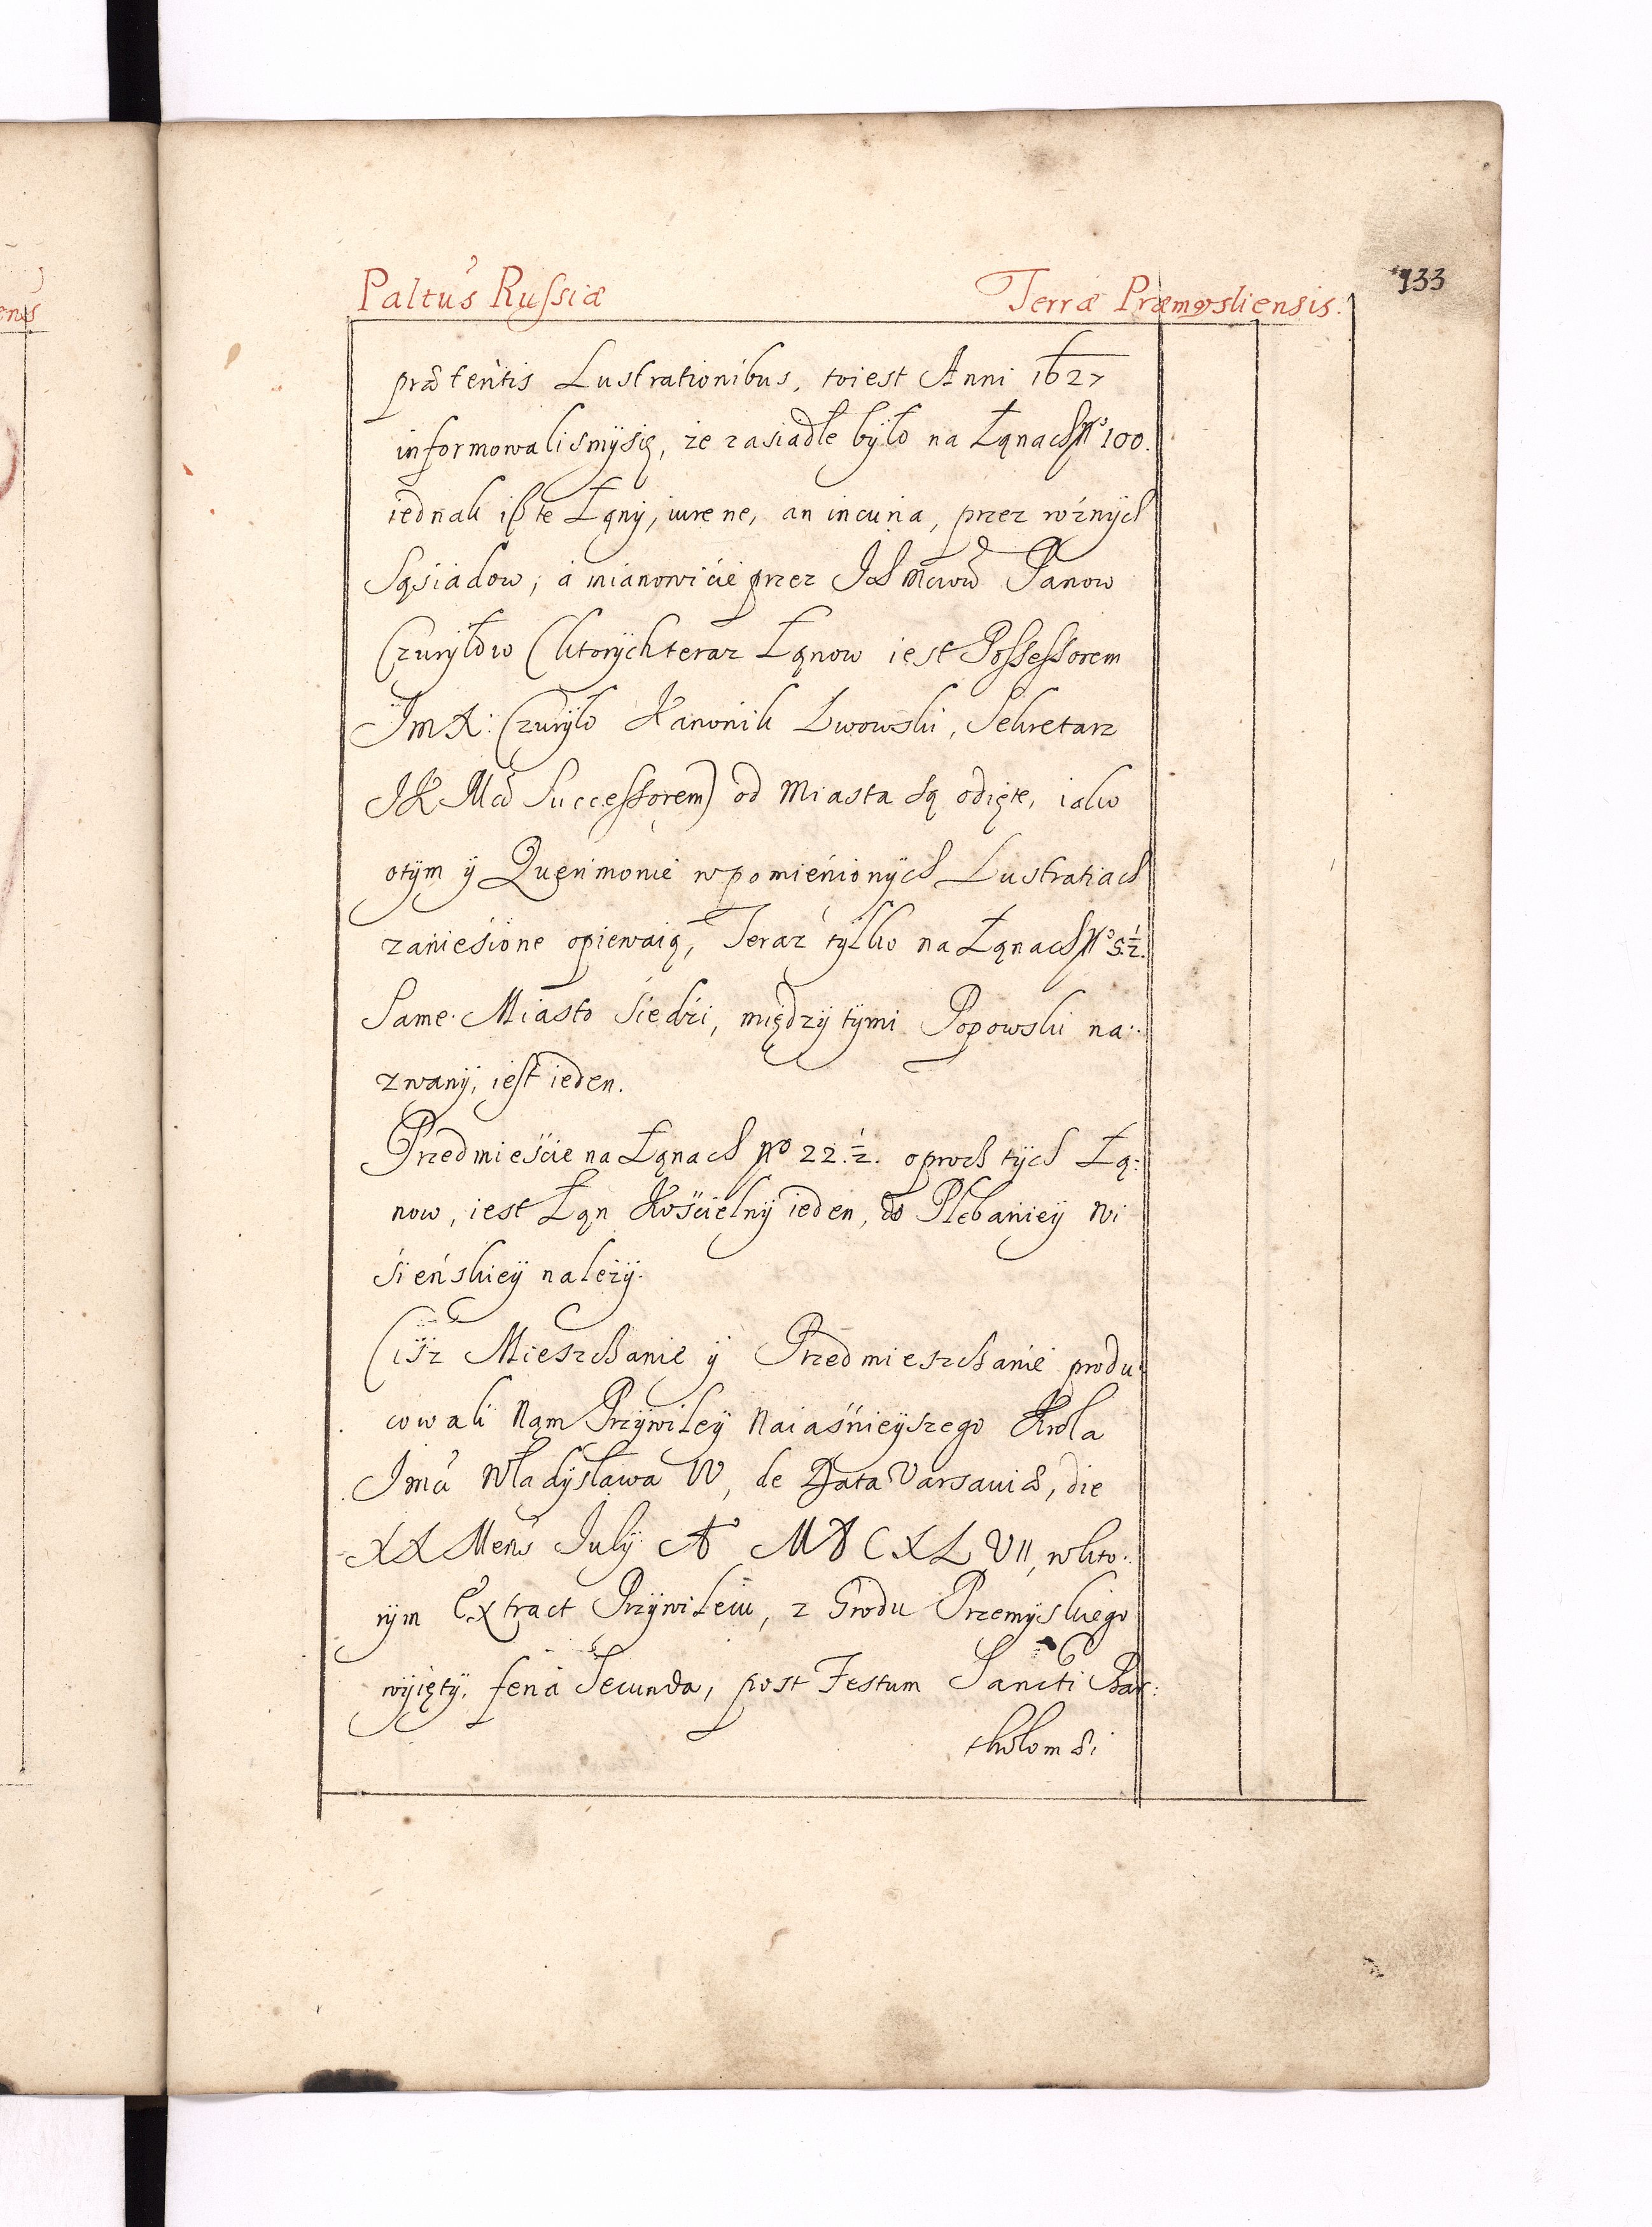 133
Paltus Russiæ Terræ Præmysliensis.
præteritis Lustrationibus, toiest Anni 1627
informowalismysię, że zasiadłe było na Łąnach No 100.
iednak iß te Łąny, iure ne, an incuria, przez rożnych
Sąsiadow, á mianowicie przez Ich Mciow Panow
Czuryłow (ktorych teraz Łąnow iest Possessorem
Jm X: Czuryło Kanonik Lwowski, Sekretarz
JK Mci Successorem) od Miasta są odięte, iako
otym y Quęrimonie w pomienionych Lustratiach
zaniesione opiewaią, Teraz tylko na Łąnach No 5 1/2.
Same Miasto siedzi, między tymi Popowski na:
zwany, iest ieden.
Przedmieście na Łąnach No 22. 1/2. oproch tych Łą:
now, iest Łąn Kościelny ieden, do Plebaniey Wi
śieńskiey należy.
Ciż Mieszchanie y Przedmieszchanie produ:
cowali nąm Przywiley Naiaśnieyszego Krola
Jmci Władysława IV, de Data Varsaviæ, die
XX Mens July Ao MDCXLVII, wkto:
rym Extract Przywileiu, z Grodu Przemyskiego
wyięty, feria Secunda, post Festum Sancti Bar:
tholomæi